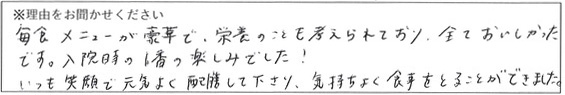 ※理由をお聞かせください
毎食メニューが豪華で、栄養のことも考えられており、全ておいしかった
です。入院時の1番の楽しみでした！
いつも笑顔で元気よく配膳して下さり、気持ちよく食事をとることができました。